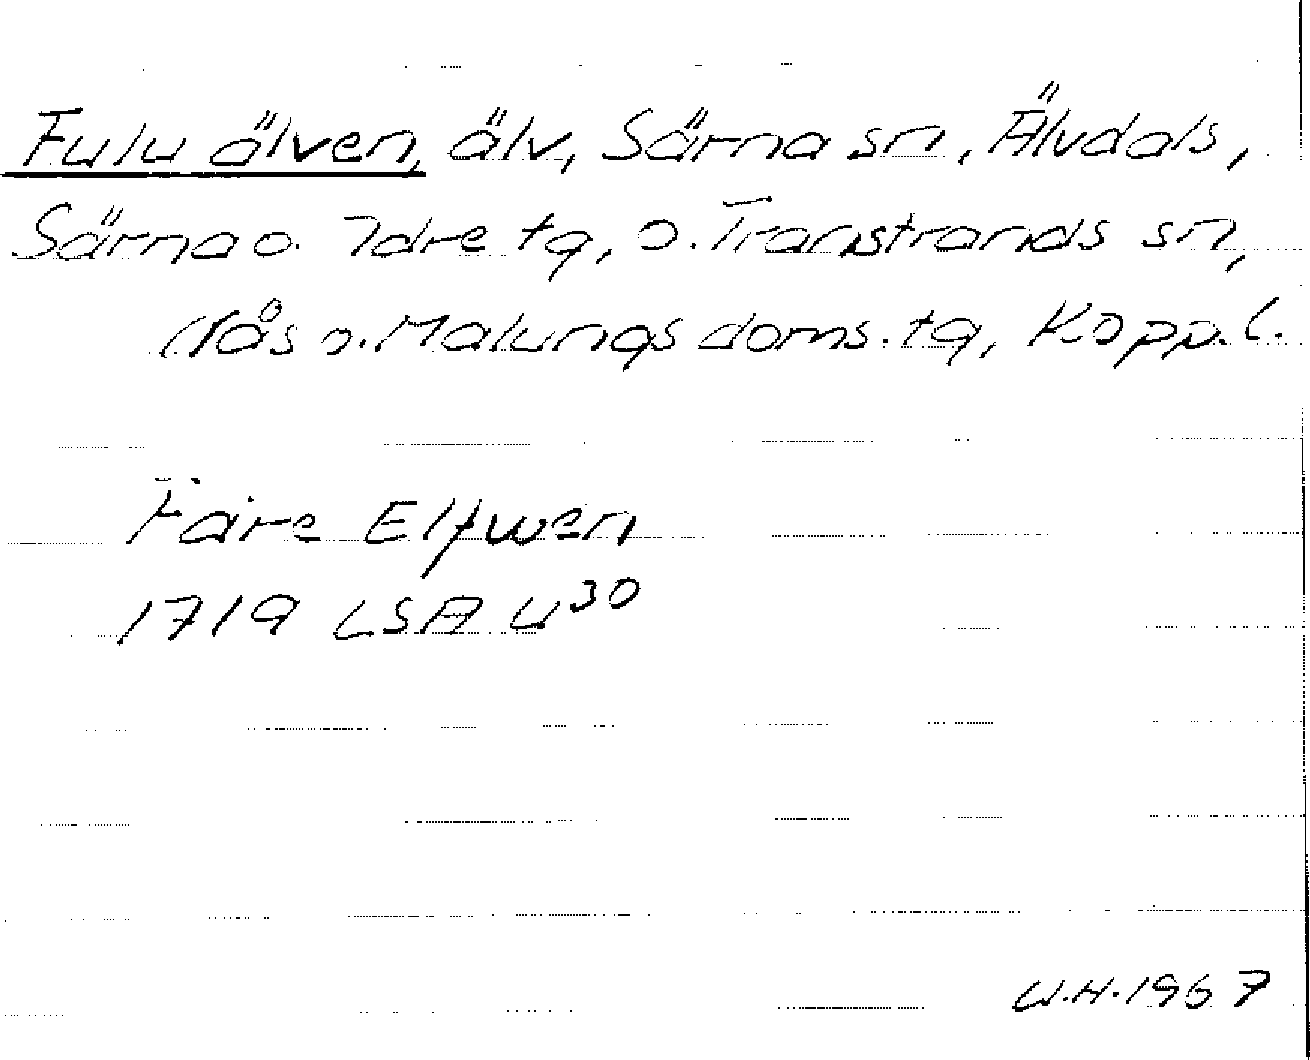 Fulu älven, älv, Särna sn, Älvdals,
Särna o. Idre tg, o. Transtrands sn,
Nås o. Malungs doms. tg, Kopp. l.
Färe Elfwen
1719 LSA U30
W.H. 1967